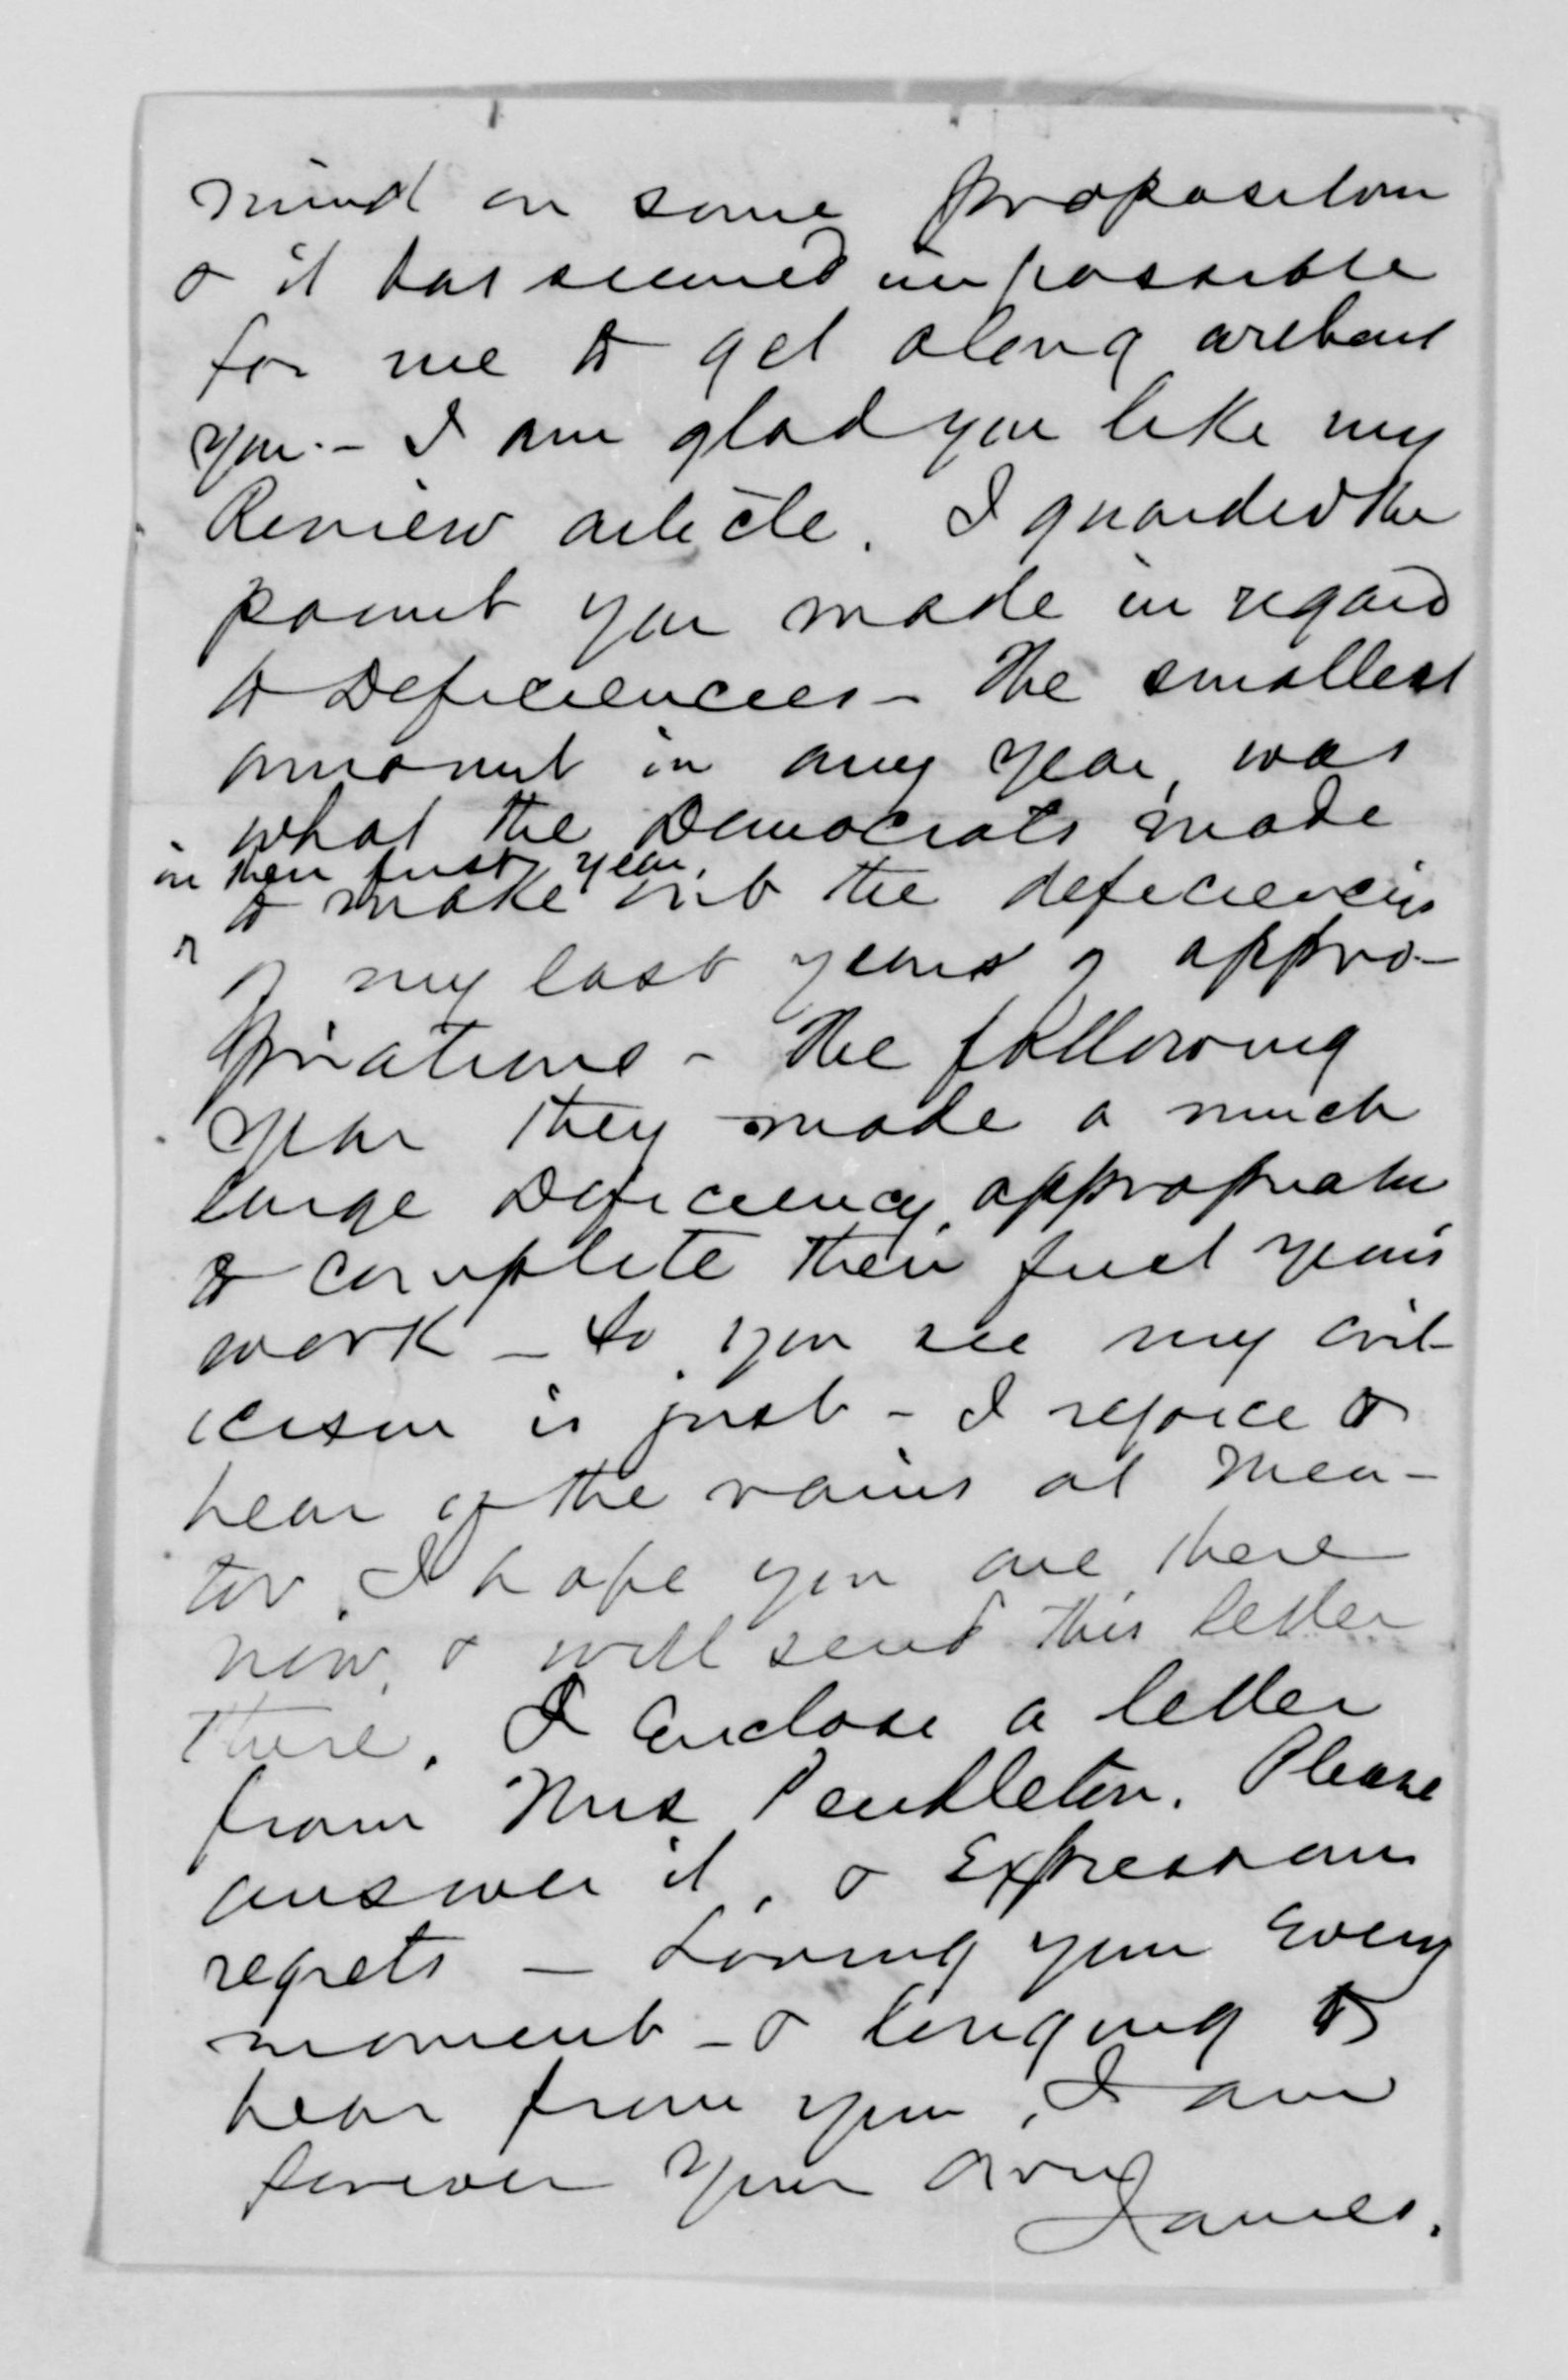 mind on some proposition
& it has seemed impossible
for me to get along without
you.- I am glad you like my
Review article. I guarded the
point you made in regard
to Deficiencies - The smallest
amount in any year, was
what the Democrats made
in their first year,
to make out the deficiencies
of my last years of appro-
priations - The following
year they made a much
large Deficiency appropriation
to complete their first years
work - So you see my crit-
icism is just - I rejoice to
hear of the rains at Men-
tor. I hope you are there
now, & will send this letter
there. I enclose a letter
from Mrs Pendleton. Please
answer it, & Express our
regrets - Loving you Every
moment - & longing to
hear from you, I am
forever Your own
James.